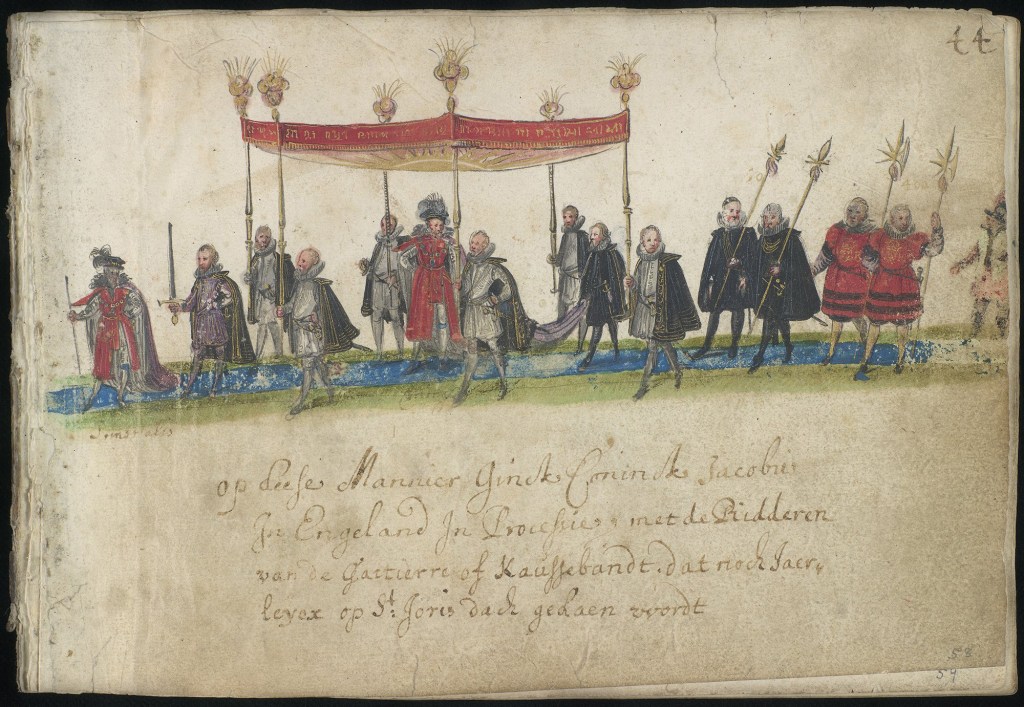 44
op deese Mannier Ginck Coninck Jacobus
In Engeland In Processie, met de Ridderen
van de Gartierre of Kaussebandt. dat noch Jaer„
leyex op St. Joris dach gedaen wordt
58
59